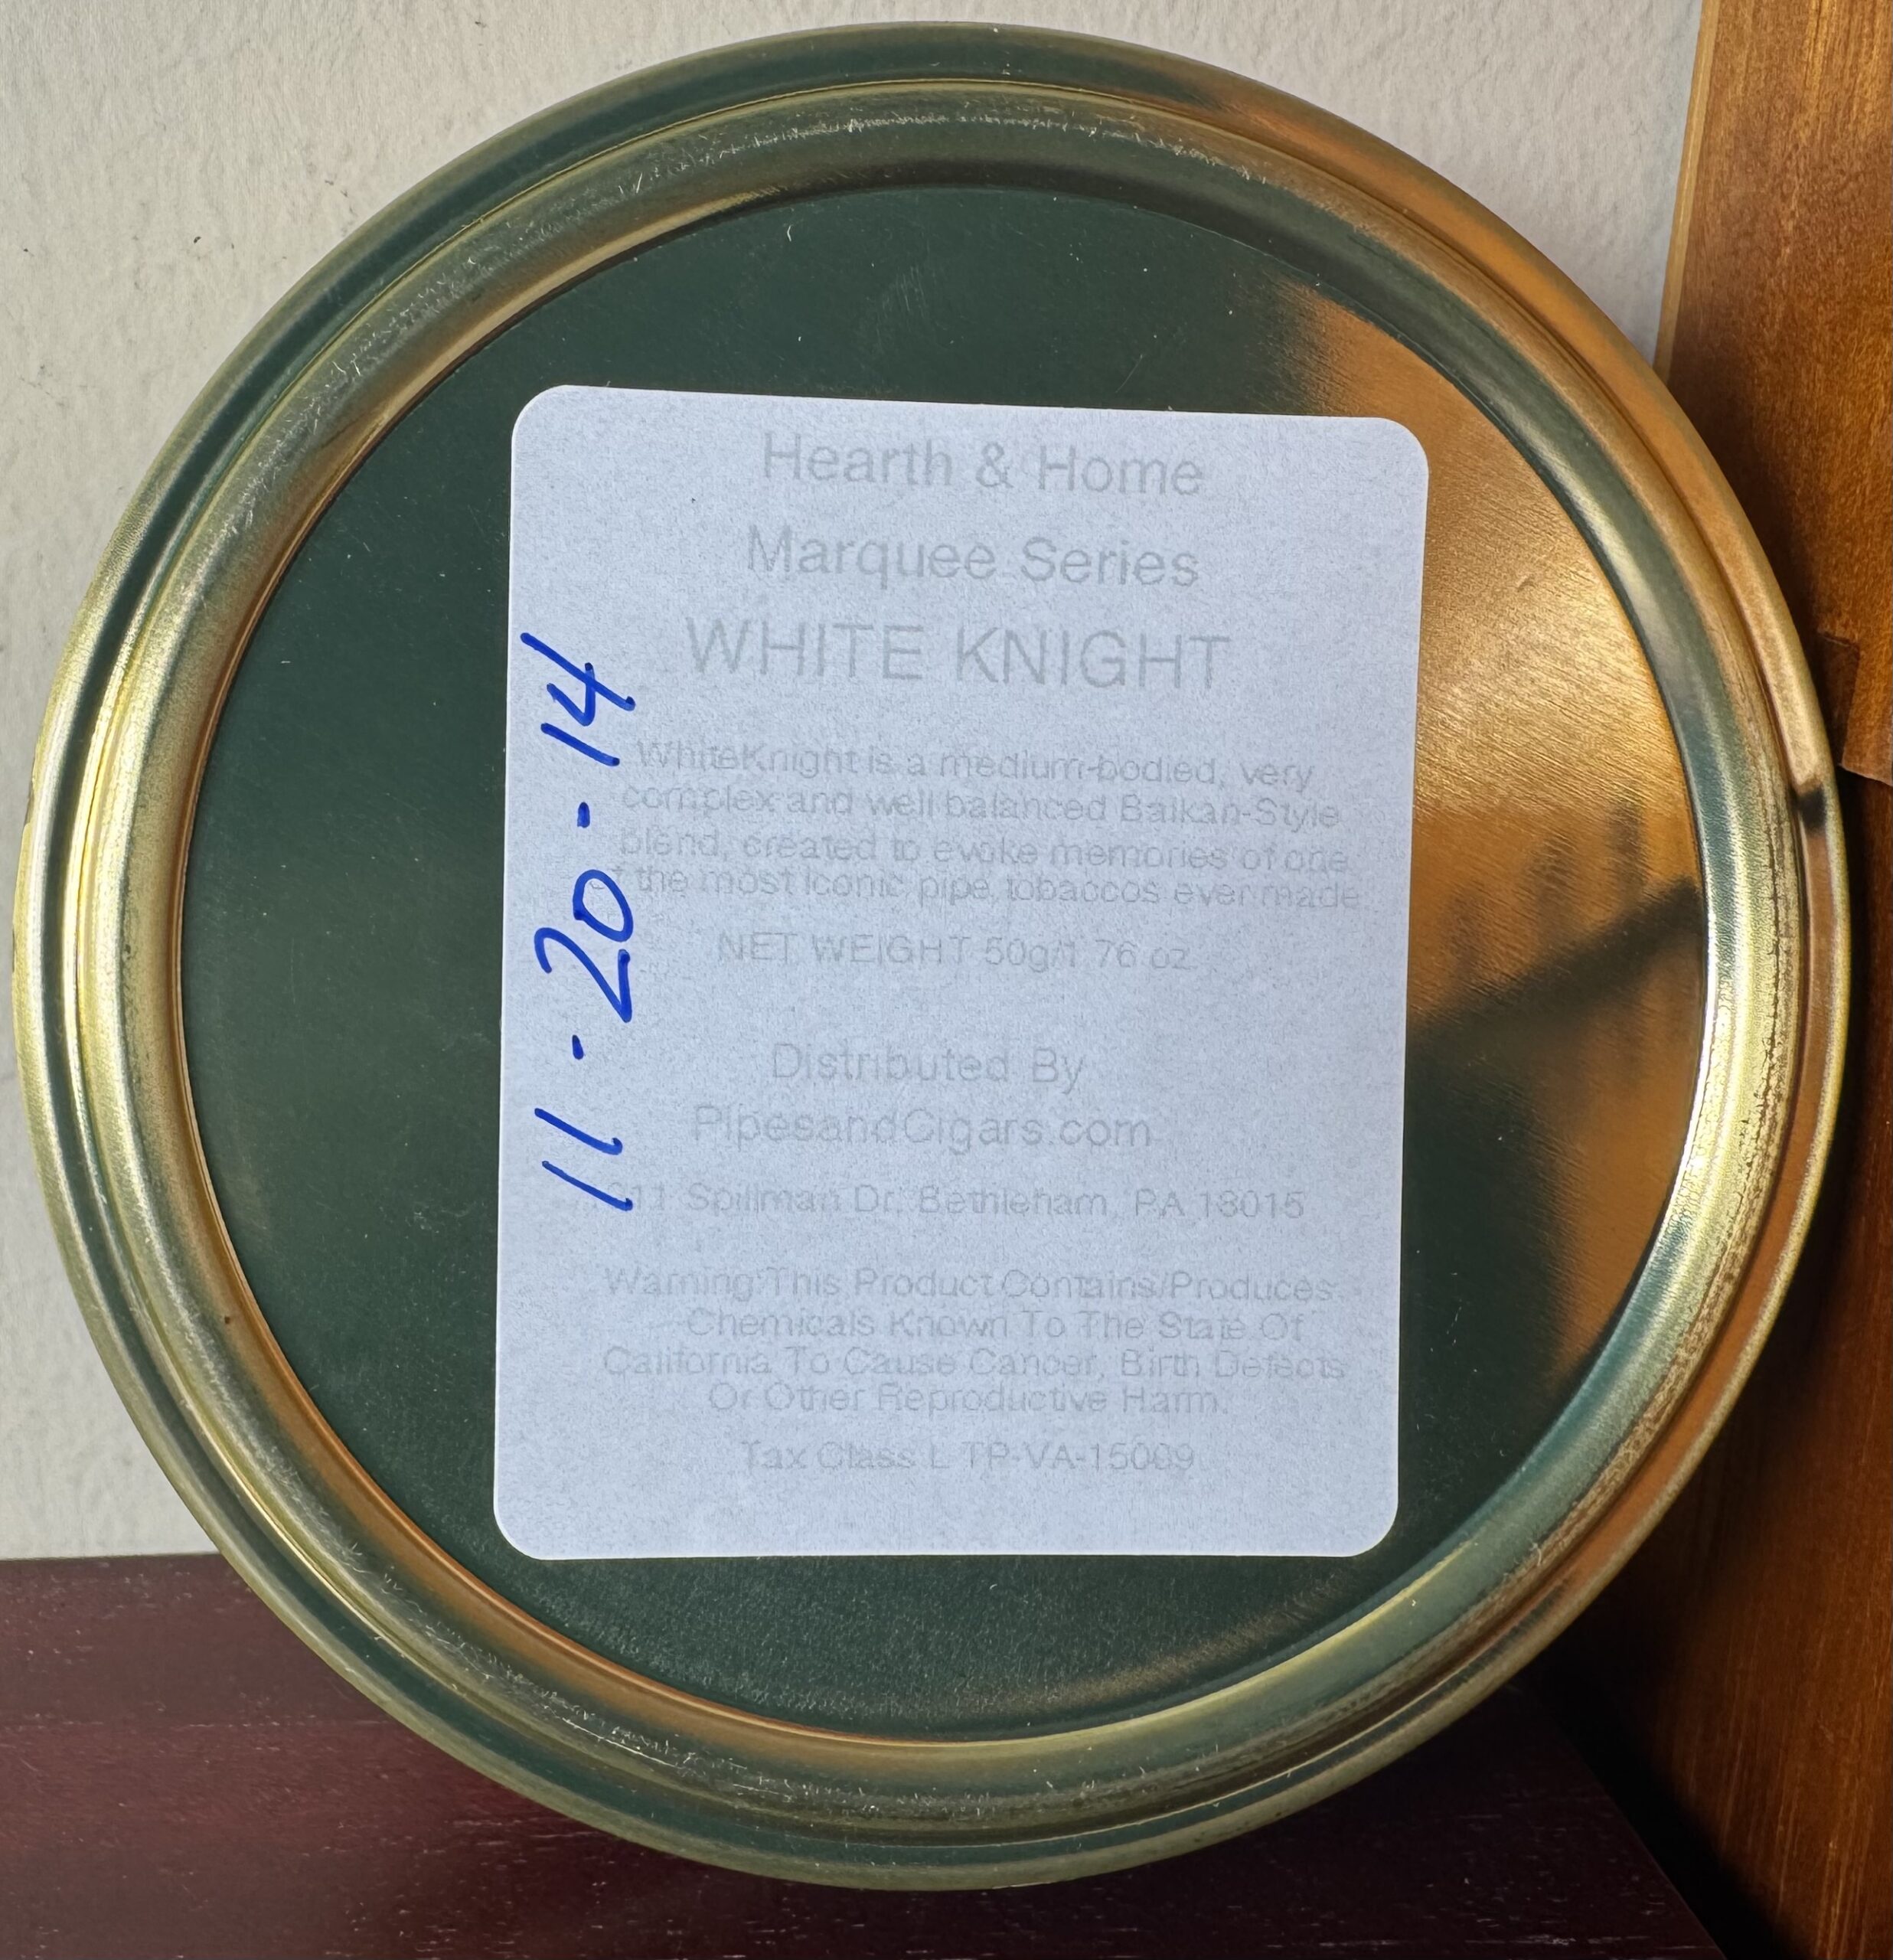 Hearth & Home
Marquee Series
WHITE KNIGHT
WhiteKnight is a medium-bodied, very
complex and well balanced Balkan-Style
blend, created to evoke memories of one
of the most iconic pipe tobaccos ever made
NET WEIGHT 50g/1.76 oz
Distributed By
PipesandCigars.com
Spillman Dr. Bethleham, PA 18015
Warning:This Product Contains/Produces
Chemicals Known To The State Of
California To Cause Cancer, Birth Defects
Or Other Reproductive Harm.
Tax Class L TP-VA-15009
11-20-14